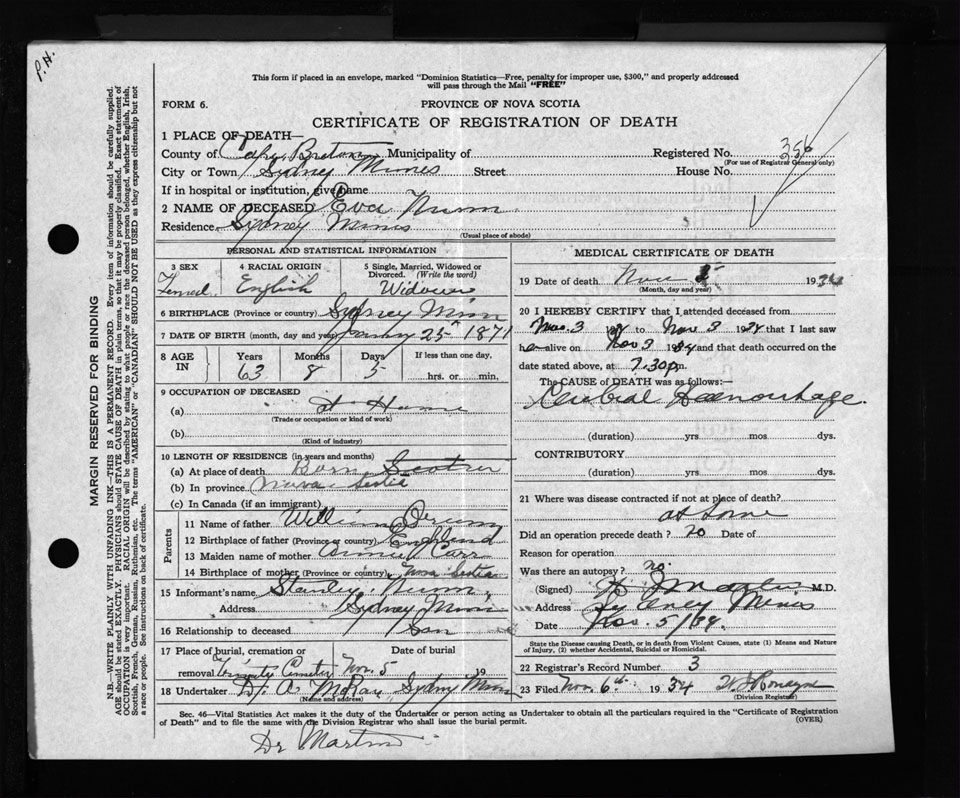 P.H.
This form if placed in an envelope, marked "Dominion Statistics—Free, penalty for improper use, $300," and properly addressed
will pass through the Mail "FREE"
FORM 6.
PROVINCE OF NOVA SCOTIA
CERTIFICATE OF REGISTRATION OF DEATH
1 PLACE OF DEATH—
County of Cape Breton Municipality of Registered No. 356
(For use of Registrar General only)
City or Town Sydney Mines Street House No.
If in hospital or institution, give name
2 NAME OF DECEASED Eva Nunn
Residence Sydney Mines
(Usual place of abode)
PERSONAL AND STATISTICAL INFORMATION
3 SEX 4 RACIAL ORIGIN 5 Single, Married, Widowed or
Divorced. (Write the word)
English Widower
6 BIRTHPLACE (Province or country) Sydney Mines
7 DATE OF BIRTH (month, day and year) 25 1871
8 AGE IN Years Months Days If less than one day,
63 8 5 hrs. or min.
9 OCCUPATION OF DECEASED
(a) At Home
(Trade or occupation or kind of work)
(b)
(Kind of industry)
10 LENGTH OF RESIDENCE (in years and months)
(a) At place of death Born
(b) In province Nova Scotia
(c) In Canada (if an immigrant)
Parents
11 Name of father William
12 Birthplace of father (Province or country) England
13 Maiden name of mother Annie Carr
14 Birthplace of mother (Province or country) Nova Scotia
15 Informant's name Stanley Nunn
Address Sydney Mines
16 Relationship to deceased Son
17 Place of burial, cremation or Date of burial
removal Trinity Cemetery Nov. 5 19
18 Undertaker H. A. McRae, Sydney Mines
(Name and address)
MEDICAL CERTIFICATE OF DEATH
19 Date of death Nov 1934
(Month, day and year)
20 I HEREBY CERTIFY that I attended deceased from
Nov. 3 1934 to Nov 3 1934 that I last saw
her alive on Nov 3 1934 and that death occurred on the
date stated above, at 7.30 p.m.
The CAUSE OF DEATH was as follows:—
Cerebral Haemorrhage.
(duration) yrs mos dys.
CONTRIBUTORY
(duration) yrs mos dys.
21 Where was disease contracted if not at place of death?
at home
Did an operation precede death? no Date of
Reason for operation
Was there an autopsy? no.
(Signed) M.D.
Address Sydney Mines
Date Nov. 5/34.
State the Disease causing Death, or in death from Violent Causes, state (1) Means and Nature
of Injury, (2) whether Accidental, Suicidal or Homicidal.
22 Registrar's Record Number 3
23 Filed Nov. 6th 1934
(Division Registrar)
Sec. 46—Vital Statistics Act makes it the duty of the Undertaker or person acting as Undertaker to obtain all the particulars required in the "Certificate of Registration
of Death" and to file the same with the Division Registrar who shall issue the burial permit. (OVER)
Dr Martin
MARGIN RESERVED FOR BINDING
N.B.—WRITE PLAINLY WITH UNFADING INK—THIS IS A PERMANENT RECORD. Every item of information should be carefully supplied.
AGE should be stated EXACTLY. PHYSICIANS should STATE CAUSE OF DEATH in plain terms, so that it may be properly classified. Exact statement of
OCCUPATION is very important. RACIAL ORIGIN will be described by stating to what people or race the deceased person belonged, whether English, Irish,
Scottish, French, German, Russian, Ruthenian, etc. The terms "AMERICAN" or "CANADIAN" SHOULD NOT BE USED as they express citizenship but not
a race or people. See instructions on back of certificate.